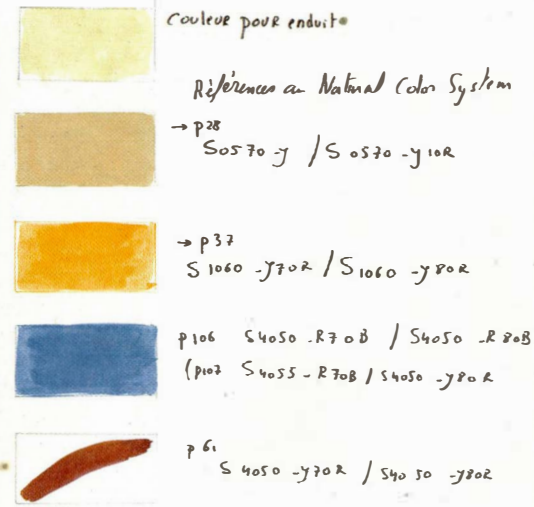 Couleur pour enduit
Références au Natural Color System
→ p28
S0570-y / S 0570-y10R
→ p37
S 1060 -y70R / S1060 -y80R
p106 S4050 -R70B / S4050 -R80B
(p107 S4055 - R70B / S4050 -y80R
p61
S 4050 -y70R / S4050 -y80R